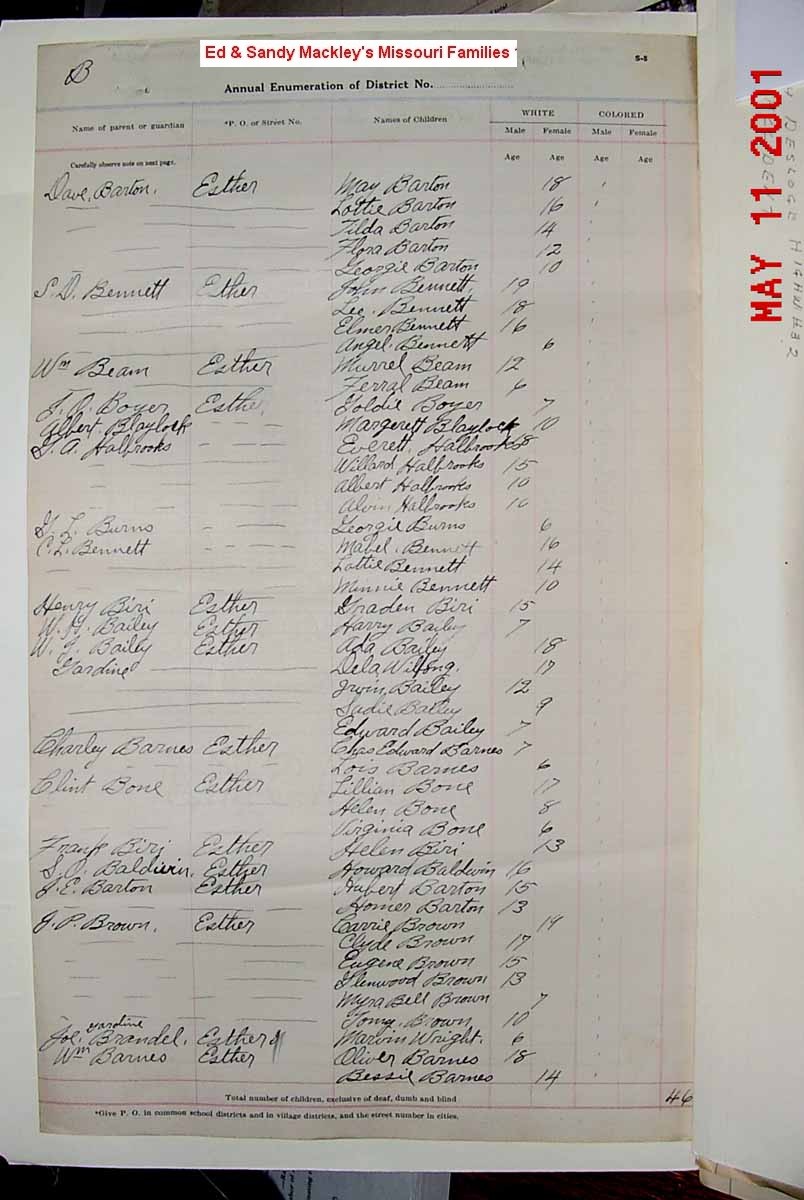 Ed & Sandy Mackley's Missouri Families
B
S-8
Annual Enumeration of District No.
Name of parent or guardian *P. O. or Street No. Names of Children WHITE COLORED
Male Female Male Female
Carefully observe note on next page. Age Age Age Age
Dave Barton. Esther May Barton 18
Lottie Barton 16
Tilda Barton 14
Flora Barton 12
Georgie Barton 10
S. D. Bennett Esther John Bennett 19
Lee Bennett 18
Elmer Bennett 16
Angel Bennett 6
Wm Beam Esther Murrel Beam 12
Ferral Beam 6
Boyer Esther Goldie Boyer 7
Albert Blaylock Margerett Blaylock 10
Halbrooks Everett Halbrooks 8
Willard Halbrooks 15
Albert Halbrooks 10
Alvin Halbrooks
Burns Georgie Burns 6
C. L. Bennett Mabel Bennett 16
Lottie Bennett 14
Minnie Bennett 10
Henry Biri Esther Graden Biri 15
W. H. Bailey Esther Harry Bailey 7
Bailey Esther Ada Bailey 18
Gardine Dela Wilfong. 17
Irwin Bailey 12
Sadie Bailey 9
Edward Bailey 7
Charley Barnes Esther Chas Edward Barnes 7
Lois Barnes 6
Clint Bone Esther Lillian Bone 17
Helen Bone 8
Virginia Bone 6
Frank Biri Esther Helen Biri 13
Esther Howard Baldwin 16
J. E. Barton Esther Hubert Barton 15
Homer Barton 13
J. P. Brown. Esther Carrie Brown 19
Clyde Brown 17
Eugene Brown 15
Glenwood Brown 13
Myra Bell Brown 7
Tomy Brown 10
gardine
Joe. Brandel. Esther Marvin Wright. 6
Wm Barnes Esther Oliver Barnes 18
Bessie Barnes 14
Total number of children, exclusive of deaf, dumb and blind 46
*Give P. O. in common school districts and in village districts, and the street number in cities.
MAY 11 2001
DESLOGE HIGHWAY 32